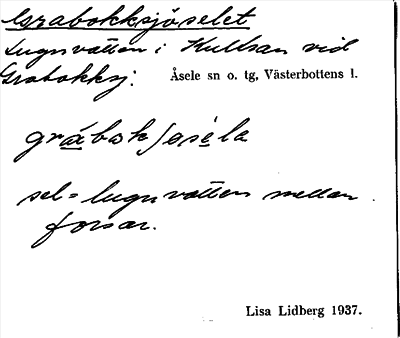 Grabokksjöselet
Lugnvatten i Kultsan vid
Grabokksj: Åsele sn o. tg, Västerbottens l.
grabokʃøsela
sel = lugnvatten mellan
forsar.
Lisa Lidberg 1937.